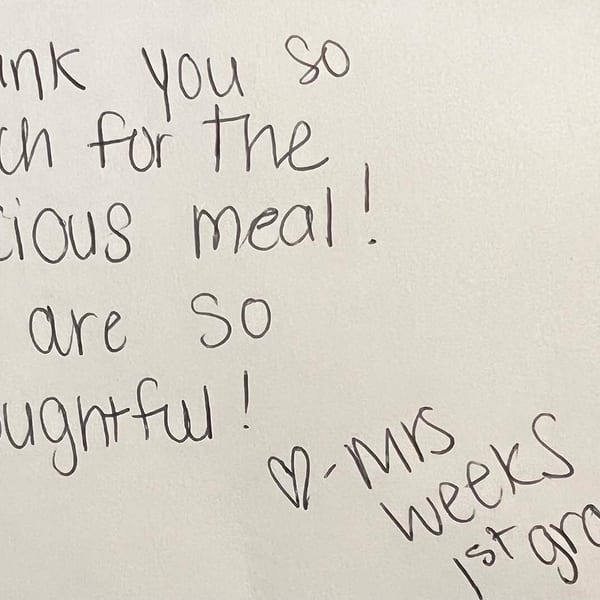 ank you so
ch for the
cious meal!
are so
oughtful!
♡-Mrs
weeks
1st gra